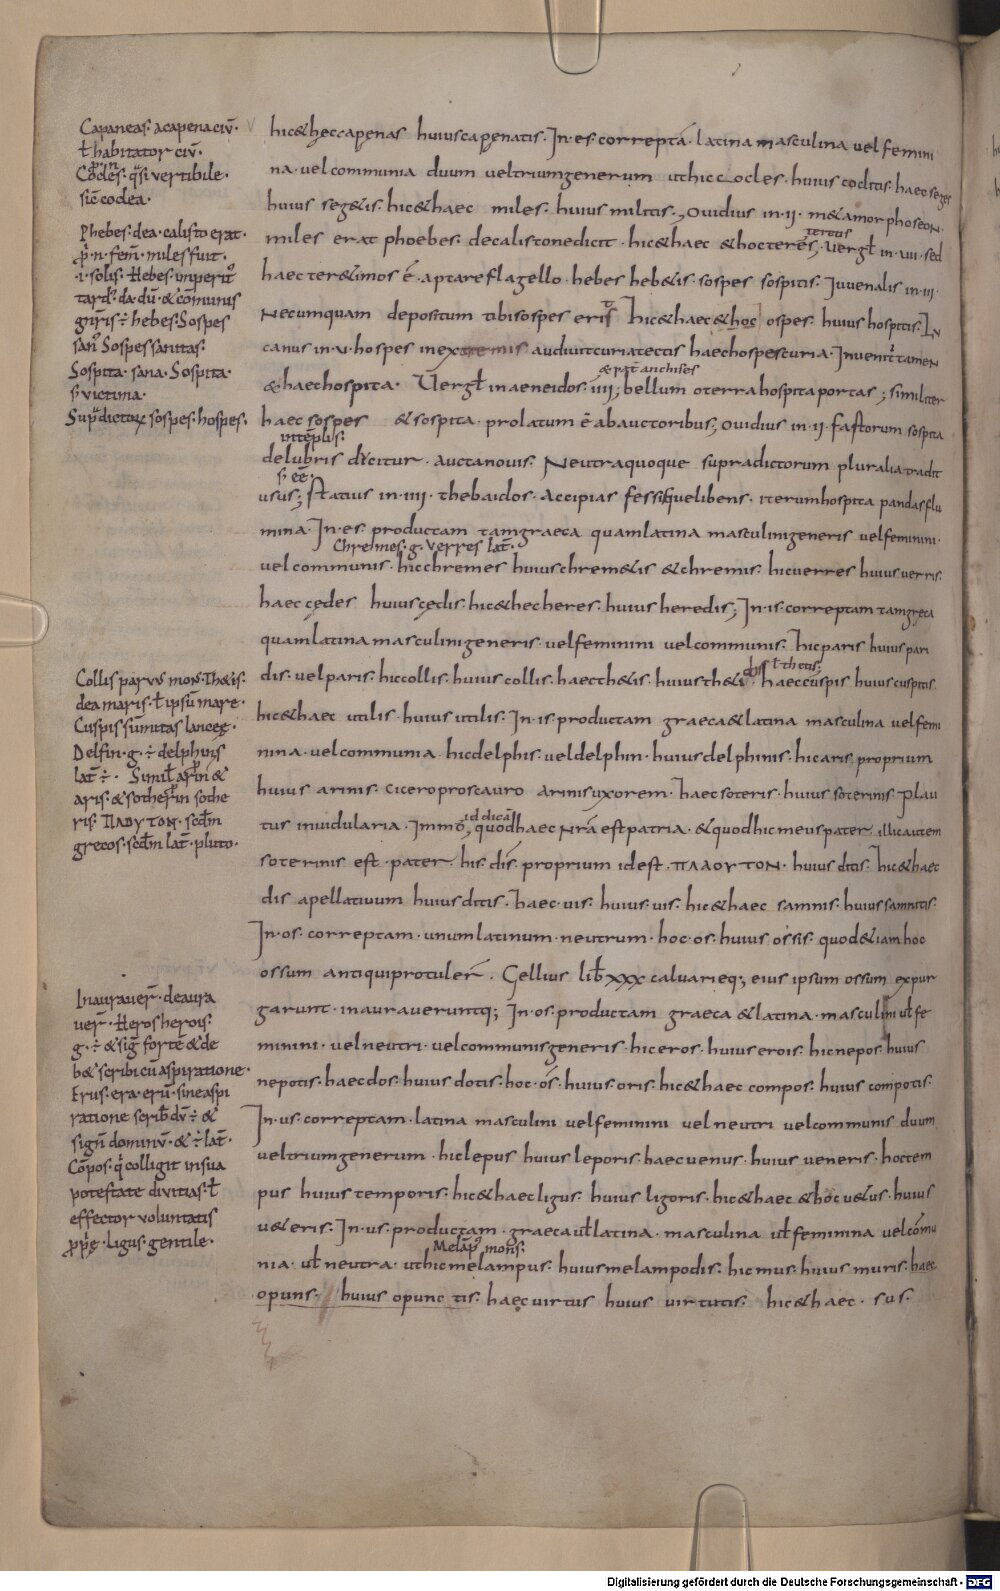 Capaneas· acapenaciū·
ł habitator ciū·
Cocles· q̄si vertibile·
sic̄ coclea·
Phebes· dea· calisto erat·
p̄·n· fem̄· miles fuit·
·i· solis· Hebes· inperit᷒
tard᷒· da· dū· & cōmunis
gn̄ris ÷ hebes· Sospes
san᷒ Sospes sanitas·
Sospita· sana· Sospita·
s· victima·
Sup̄dictoꝝ sospes· hospes·
hic&heccapenas huiuscapenatis· In·es· correptā· latina masculina vel femini
na· vel communia duum vel trium generum ut hic cocles· huius coclitis· haec seges
huius seg&is· hic&haec miles· huius militis·, Ouidius in·ii· m&amorphoseon·
tertius
miles erat phoebes· decalistonedicit· hic&haec &hocteres·, Vergł in·vii· sed
haec ter&imos ē· aptare flagello· hebes heb&is· sospes sospitis· Iuuenalis in·iii·
Necumquam depositum tibi sospes erit hic&haec&hoc ospes· huius hospitis· Lu
canus in·v· hospes in extremis audiuitcuriatectis haec hospes curia· Inuenit᷒ tamen
& pat̄ anchises
&haechospita· Vergł in aeneidos· iii; bellum oterra hospita portas; similiter
haec sospes & sospita· prolatum ē ab auctoribus; Ouidius in·ii· fastorum sospita
in tēplis·
delubris dicitur· auctanouis· Neutraquoque supradictorum pluralia tradit
s· eē·
usus; Statius in·iiii· thebaidos· Accipias fessisq;uelibens· iterum hospita pandas flu
mina· In·es· productam tamgraeca quam latina masculini generis vel feminini·
Chremes· g· verres lat̄·
vel communis· hicchremes huiuschrem&is &chremis· hicuerres huius uerris·
haec cędes huius cędis· hic&hecheres· huius heredis; In·is· correptam tamgreca
quam latina masculini generis· vel feminini vel communis· hicparis huius pari
dis ł thetis;
dis· vel paris· hiccollis· huius collis· haecth&is· huiusth&i haeccuspis huius cuspitis
hic&haec utilis· huius utilis· In·is· productam graeca&latina masculina vel femi
nina· vel communia hicdelphis· vel delphin· huius delphinis· hicaris proprium
huius arinis· Cicero proscauro arinis uxorem· haec soteris· huius soterinis· Plau
id dicā
tus in uidularia· Immo, quodhaec nr̄a est patria· & quod hic meus pater· illic autem
soterinis est· pater· his· dis· proprium id est· ΠΛΑΟΥΤΟΝ· huius ditis· hic&haec
dis apellatiuum huius ditis· haec· uis· huius· uis· hic&haec samnis· huius samnitis·
In·os· correptam· unum latinum· neutrum· hoc·os· huius ossis· quod&iam hoc
ossum antiqui protuler̄· Gellius lib̄ xxx calvarieq; eius ipsum ossum expur
garunt· inauraueruntq; In·os· productam graeca &latina· masculini uł fe
minini· vel neutri· vel communis generis· hic eros· huius erois· hic nepos· huius
nepotis· haecdos· huius dotis· hoc·os· huius· oris· hic&haec compos· huius compotis·
In·us· correptam· latina masculini vel feminini vel neutri vel communis duum
vel trium generum· hic lepus huius leporis· haec uenus· huius ueneris· hoc tem
pus huius temporis· hic&haec ligus· huius ligoris· hic&haec &hoc u&us· huius
u&eris· In·us· productam· graeca uł latina· masculina uł feminina vel cōmu
Melāp᷒ mons·
nia· uł neutra· ut hic melampus· huius melampodis· hic mus· huius muris· haec
opuns· huius opunc tis· haec uirtus huius uirtutis· hic&haec· sus·
Collis parv᷒ mon· Th&is·
dea maris· ł ipsū mare·
Cuspis sūmitas lanceę·
Delfin· g· ÷ delphinis
lat̄ ÷· Similꝉ arin &
aris· & sotherin sothe
ris· ΠΛΟΥΤΟΝ· scd̄m
grecos· scd̄m lat̄· pluto·
Inauraver̄· deaura
uer̄· Heros herois·
g· ÷ & sig̅ forte & de
b& scribi cū aspiratione·
Erus· era· erū· sine aspi
ratione scrib̄dū ÷ &
sign̄ dominū· & ÷ lat̄·
Cōpos· q̄ colligit insua
potestate divitias· ł
effector voluntatis
p̱p̄ę· Ligus· gentile·
Digitalisierung gefördert durch die Deutsche Forschungsgemeinschaft - DFG